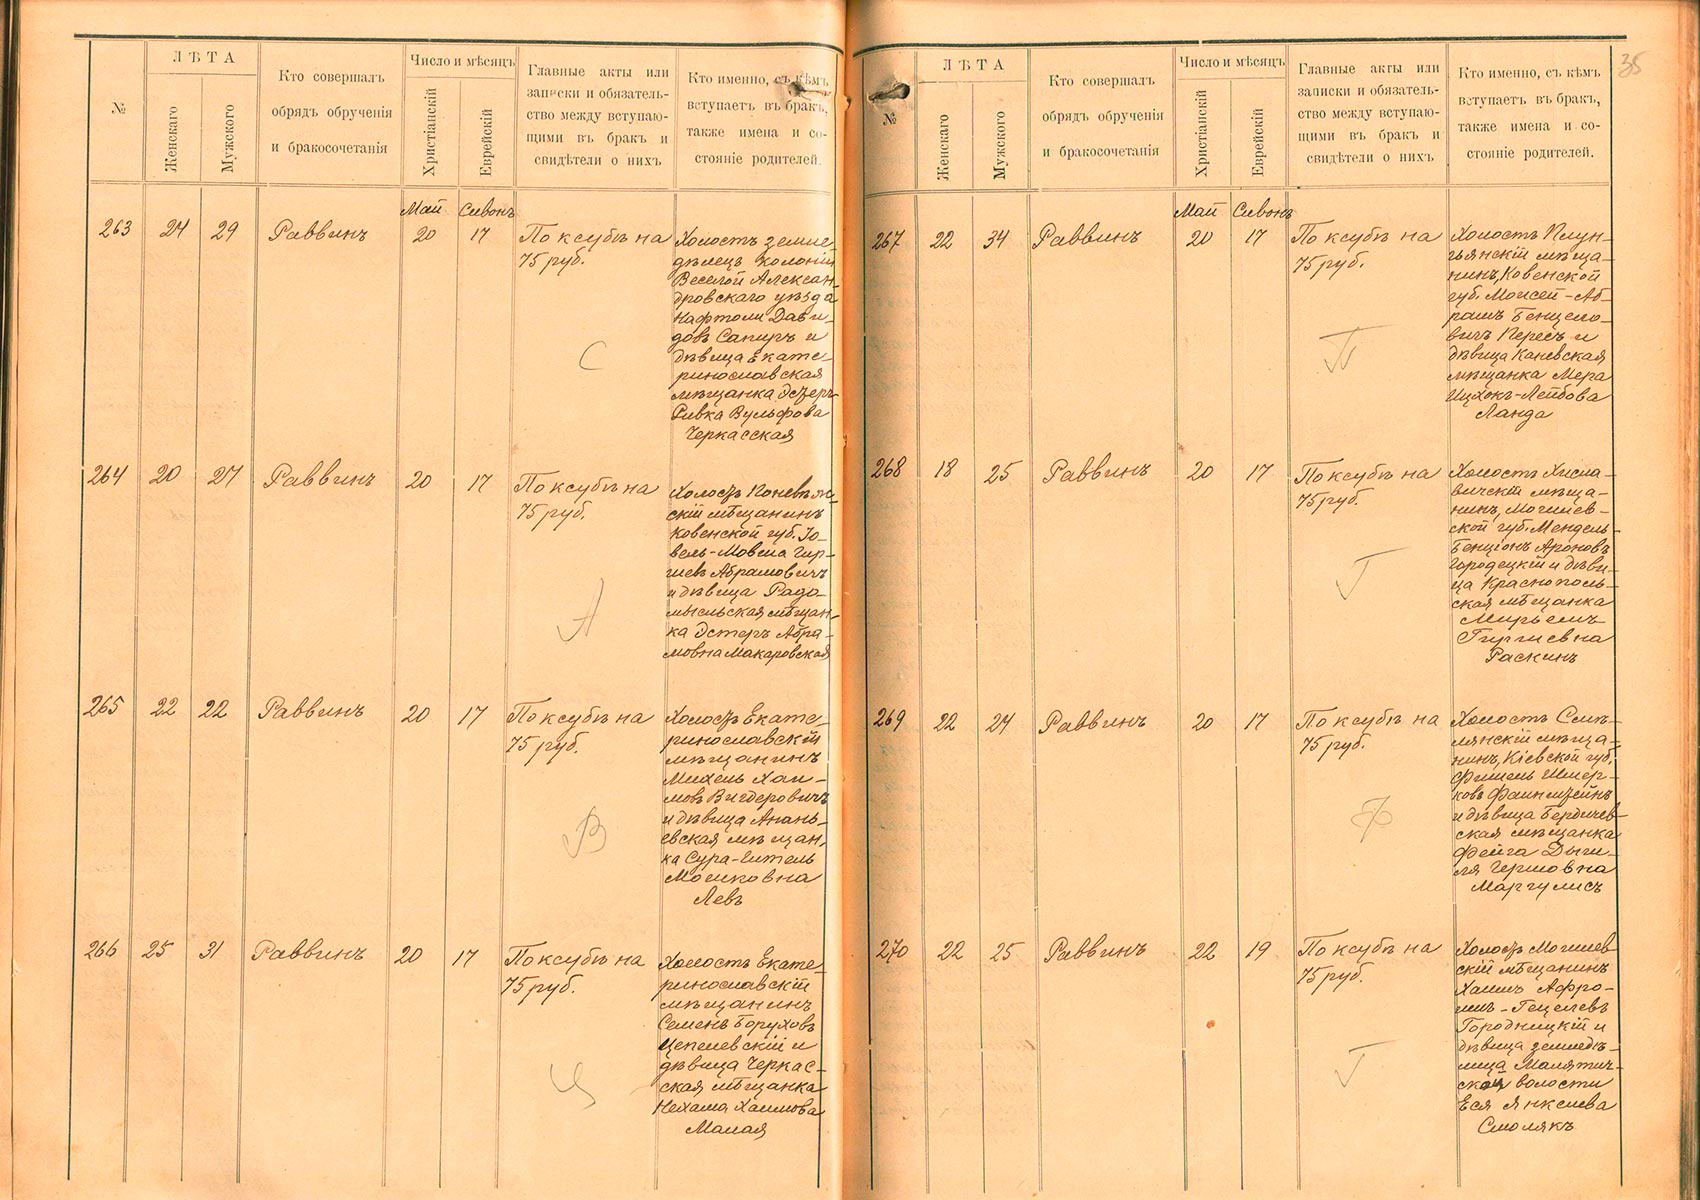 ЛѢТА
Число и мѣсяцъ
№
Женскаго
Мужского
Кто совершалъ
обрядъ обрученія
и бракосочетанія
Христіанскій
Еврейскій
Главные акты или
записки и обязатель-
ство между вступаю-
щими въ бракъ и
свидѣтели о нихъ
Кто именно, съ кѣмъ
вступаетъ въ бракъ,
также имена и со-
стояніе родителей.
Май Сивонъ
263 24 29 Раввинъ 20 17 По ксубѣ на
75 руб.
Холостъ земле-
дѣлецъ колоніи
Веселой Алексан-
дровскаго уѣзда
Нафтоли Дави-
довъ Сапиръ и
дѣвица Екате-
ринославская
мѣщанка Эстеръ-
Ривка Вульфова
Черкасская
С
264 20 27 Раввинъ 20 17 По ксубѣ на
75 руб.
Холостъ Поневѣж-
скій мѣщанинъ
Ковенской губ. Іо-
вель-Мовша Гир-
шевъ Абрамовичъ
и дѣвица Радо-
мысльская мѣщан-
ка Эстеръ Абра-
мовна Макаровская
А
265 22 22 Раввинъ 20 17 По ксубѣ на
75 руб.
Холостъ Екате-
ринославскій
мѣщанинъ
Михель Хаи-
мовъ Вигдеровичъ
и дѣвица Анань-
евская мѣщан-
ка Сура-Гитель
Мошковна
Левъ
В
266 25 31 Раввинъ 20 17 По ксубѣ на
75 руб.
Холостъ Екате-
ринославскій
мѣщанинъ
Семенъ Боруховъ
Цепелевскій и
дѣвица Черкас-
ская мѣщанка
Нехама Хаимова
Малая
Ц
35
ЛѢТА
Число и мѣсяцъ
№
Женскаго
Мужского
Кто совершалъ
обрядъ обрученія
и бракосочетанія
Христіанскій
Еврейскій
Главные акты или
записки и обязатель-
ство между вступаю-
щими въ бракъ и
свидѣтели о нихъ
Кто именно, съ кѣмъ
вступаетъ въ бракъ,
также имена и со-
стояніе родителей.
Май Сивонъ
267 22 34 Раввинъ 20 17 По ксубѣ на
75 руб.
Холостъ Плун-
гьянскій мѣща-
нинъ, Ковенской
губ. Моисей-Аб-
рамъ Бенцело-
вичъ Пересъ и
дѣвица Каневская
мѣщанка Мера
Ицхокъ-Лейбова
Ланда
П
268 18 25 Раввинъ 20 17 По ксубѣ на
75 руб.
Холостъ Хисла-
вичскій мѣща-
нинъ, Могилев-
ской губ. Мендель-
Бенціонъ Ароновъ
Городецкій и дѣви-
ца Краснополь-
ская мѣщанка
Мирьемъ
Гиршевна
Раскинъ
Г
269 22 24 Раввинъ 20 17 По ксубѣ на
75 руб.
Холостъ Смѣ-
лянскій мѣща-
нинъ, Кіевской губ.
Фишель Шмер-
ковъ Файнштейнъ
и дѣвица Бердичев-
ская мѣщанка
Фейга Дыш-
ля Гершовна
Маргулисъ
Ф
270 22 25 Раввинъ 22 19 По ксубѣ на
75 руб.
Холостъ Могилев-
скій мѣщанинъ
Хаимъ Афро-
имъ-Гецелевъ
Городницкій и
дѣвица земледѣ-
лица Малятич-
ской волости
Еся Янкелева
Смолякъ
Г